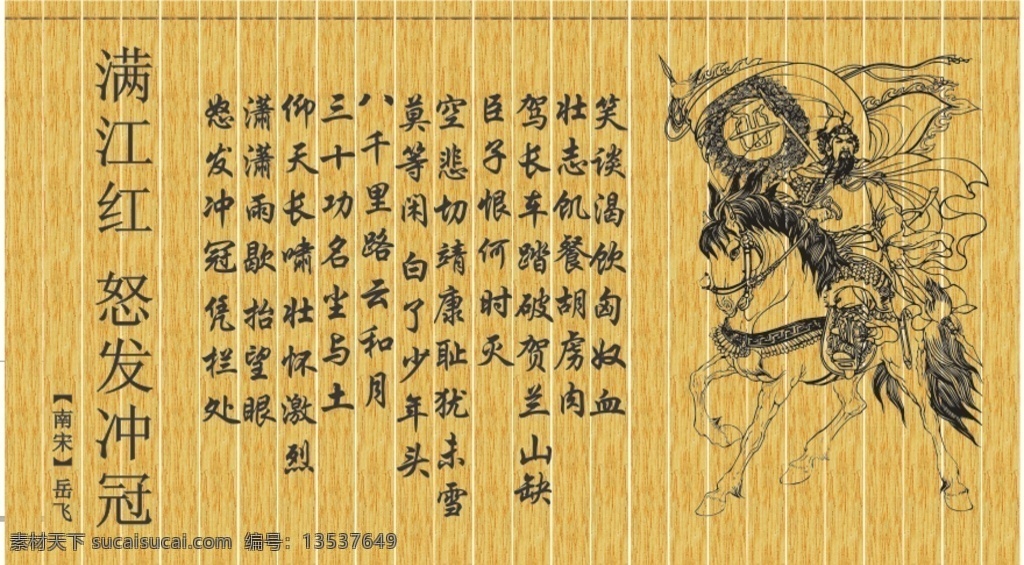 满江红 怒发冲冠
【南宋】岳飞
怒发冲冠 凭栏处
潇潇雨歇 抬望眼
仰天长啸壮怀激烈
三十功名尘与土
八千里路云和月
莫等闲 白了少年头
空悲切靖康耻犹未雪
臣子恨何时灭
驾长车踏破贺兰山缺
壮志饥餐胡虏肉
笑谈渴饮匈奴血
素材天下 sucaisucai.com 编号：13537649